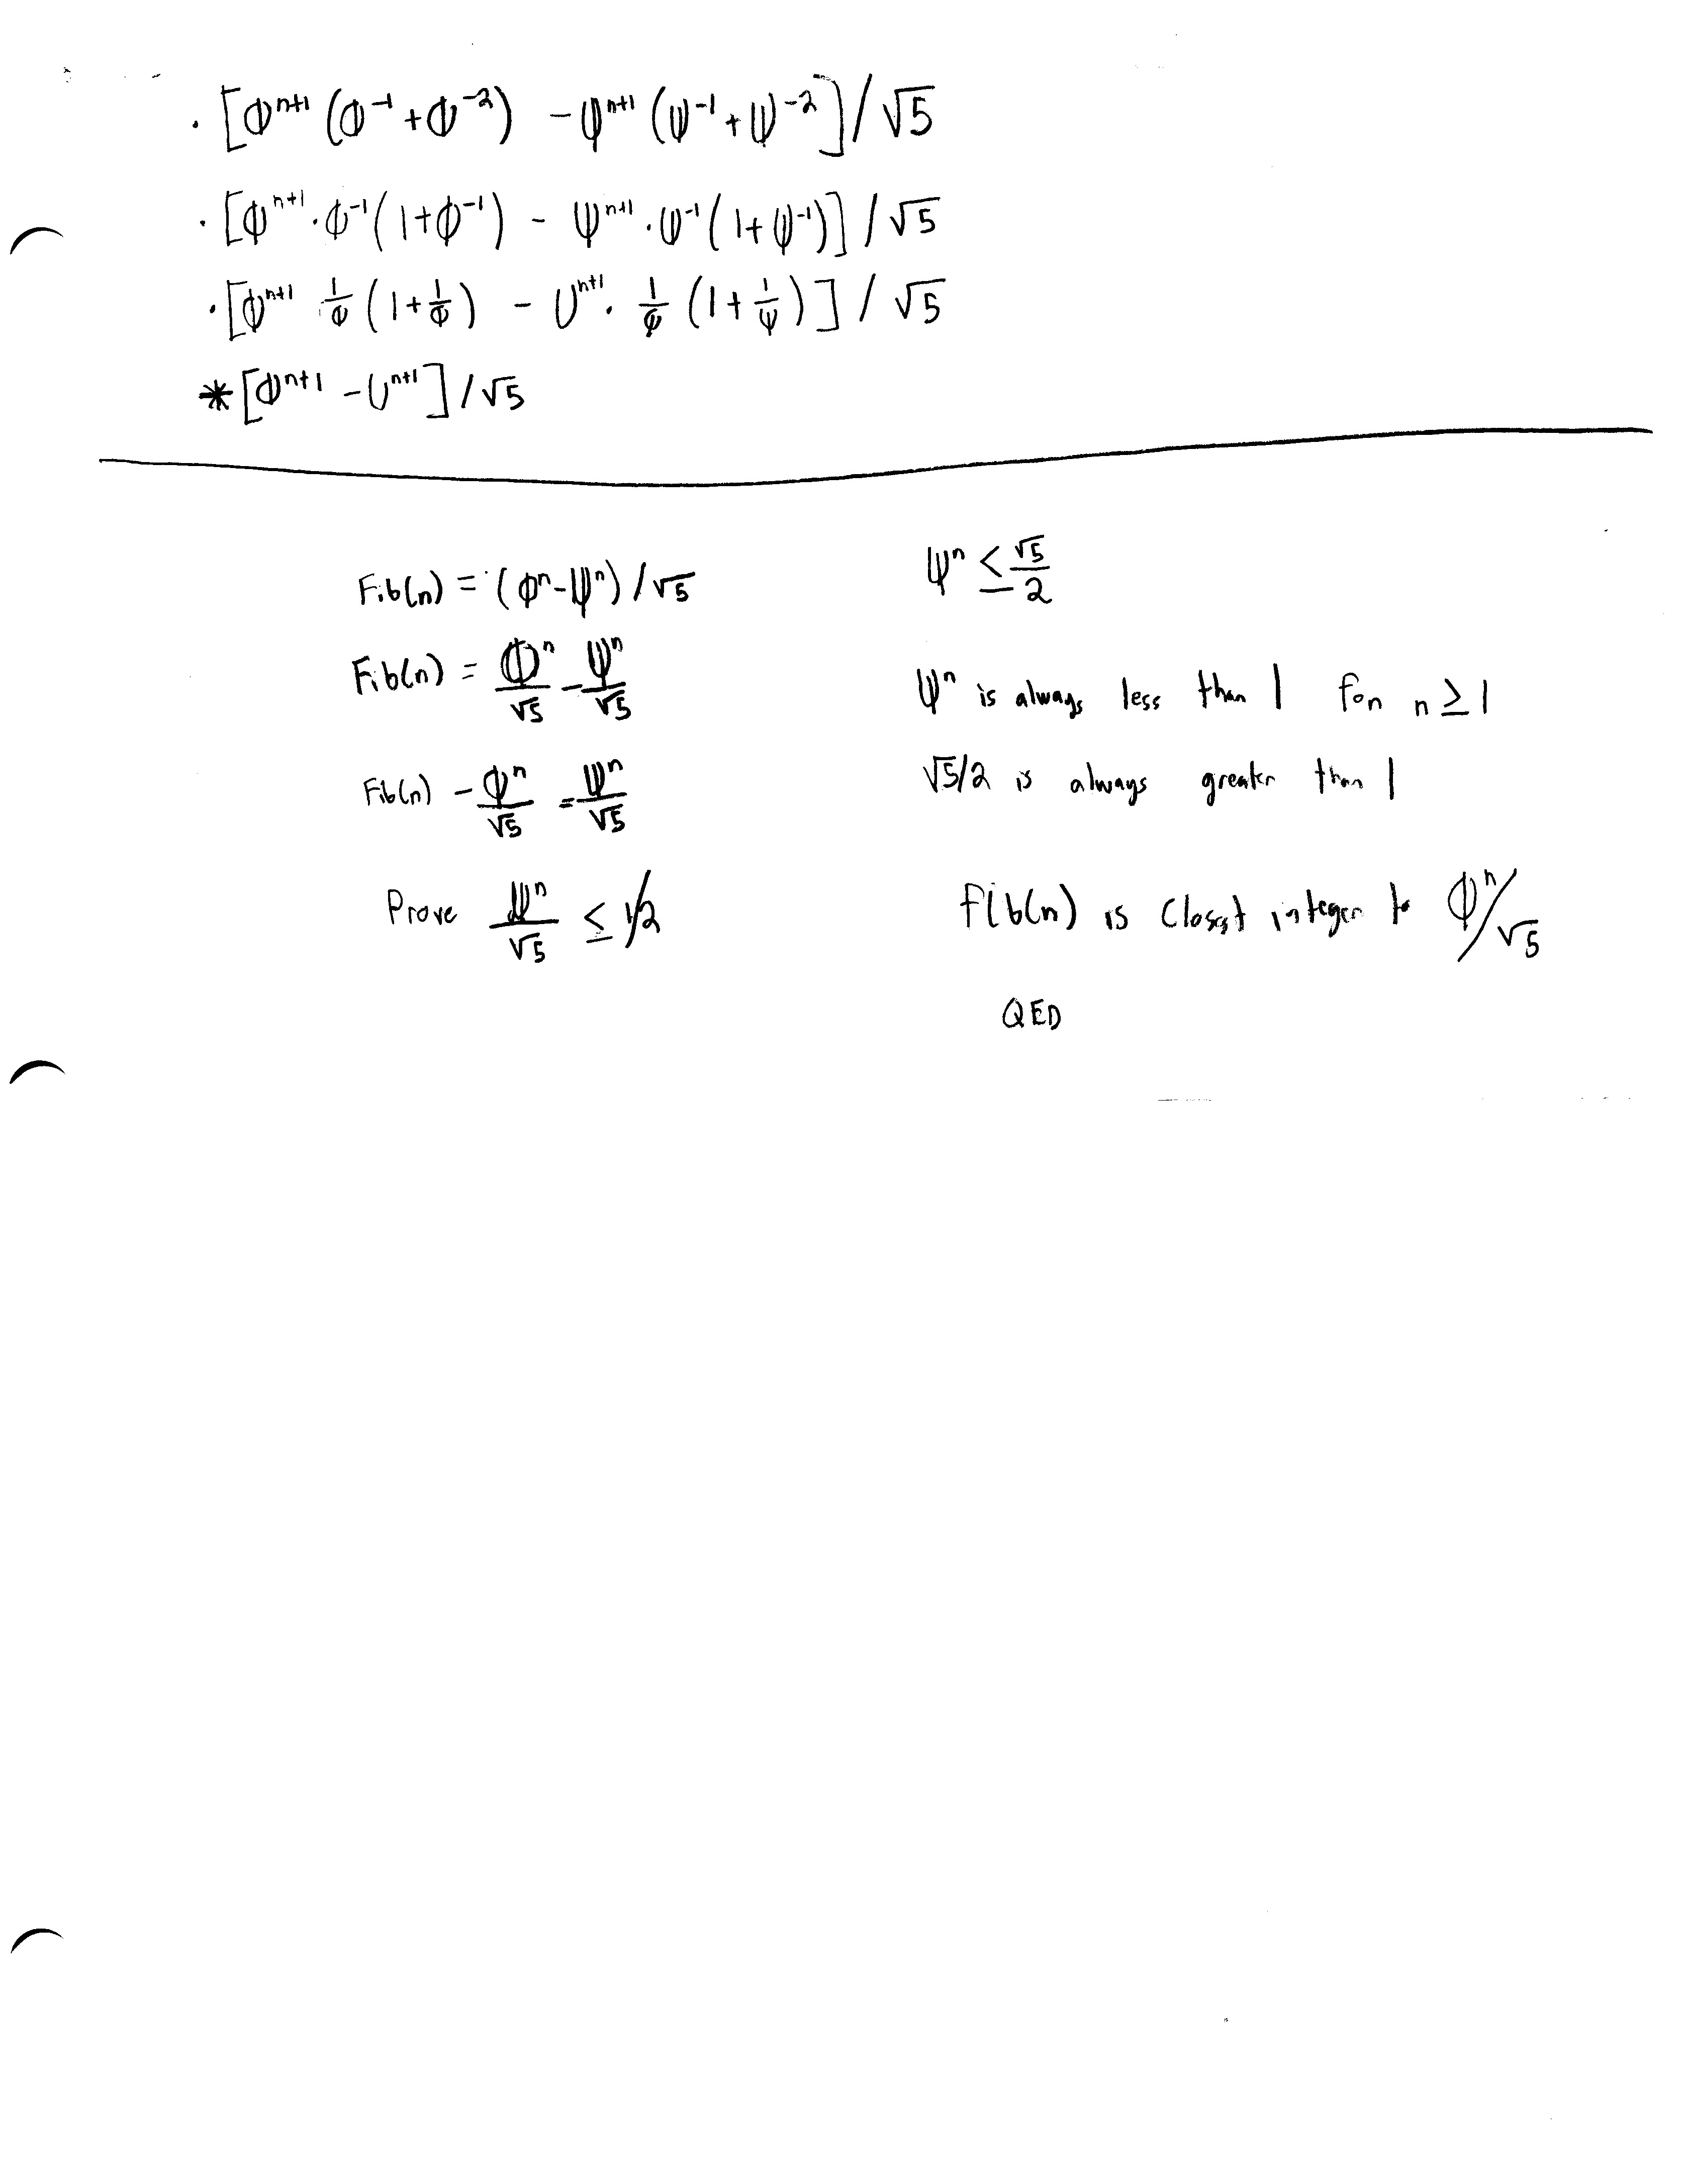 · [Φⁿ⁺¹ (Φ⁻¹ + Φ⁻²) - Ψⁿ⁺¹ (Ψ⁻¹ + Ψ⁻²] / √5
· [Φⁿ⁺¹ · Φ⁻¹ (1 + Φ⁻¹) - Ψⁿ⁺¹ · Ψ⁻¹ (1 + Ψ⁻¹)] / √5
· [Φⁿ⁺¹ 1/Φ (1 + 1/Φ) - Uⁿ⁺¹ · 1/Ψ (1 + 1/Ψ)] / √5
* [Φⁿ⁺¹ - Uⁿ⁺¹] / √5
Fib(n) = (Φⁿ - Ψⁿ) / √5
Fib(n) = Φⁿ/√5 - Ψⁿ/√5
Fib(n) - Φⁿ/√5 = Ψⁿ/√5
Prove Ψⁿ/√5 ≤ 1/2
Ψⁿ ≤ √5/2
Ψⁿ is always less than 1 for n ≥ 1
√5/2 is always greater than 1
Fib(n) is closest integer to Φⁿ/√5
QED